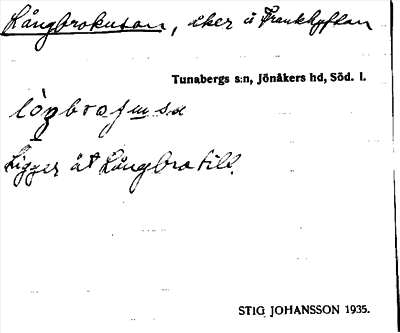 Långbrokuson, åker å Frankhyttan
Tunabergs s:n, Jönåkers hd, Söd. l.
Ligger åt Långbro till.
STIG JOHANSSON 1935.